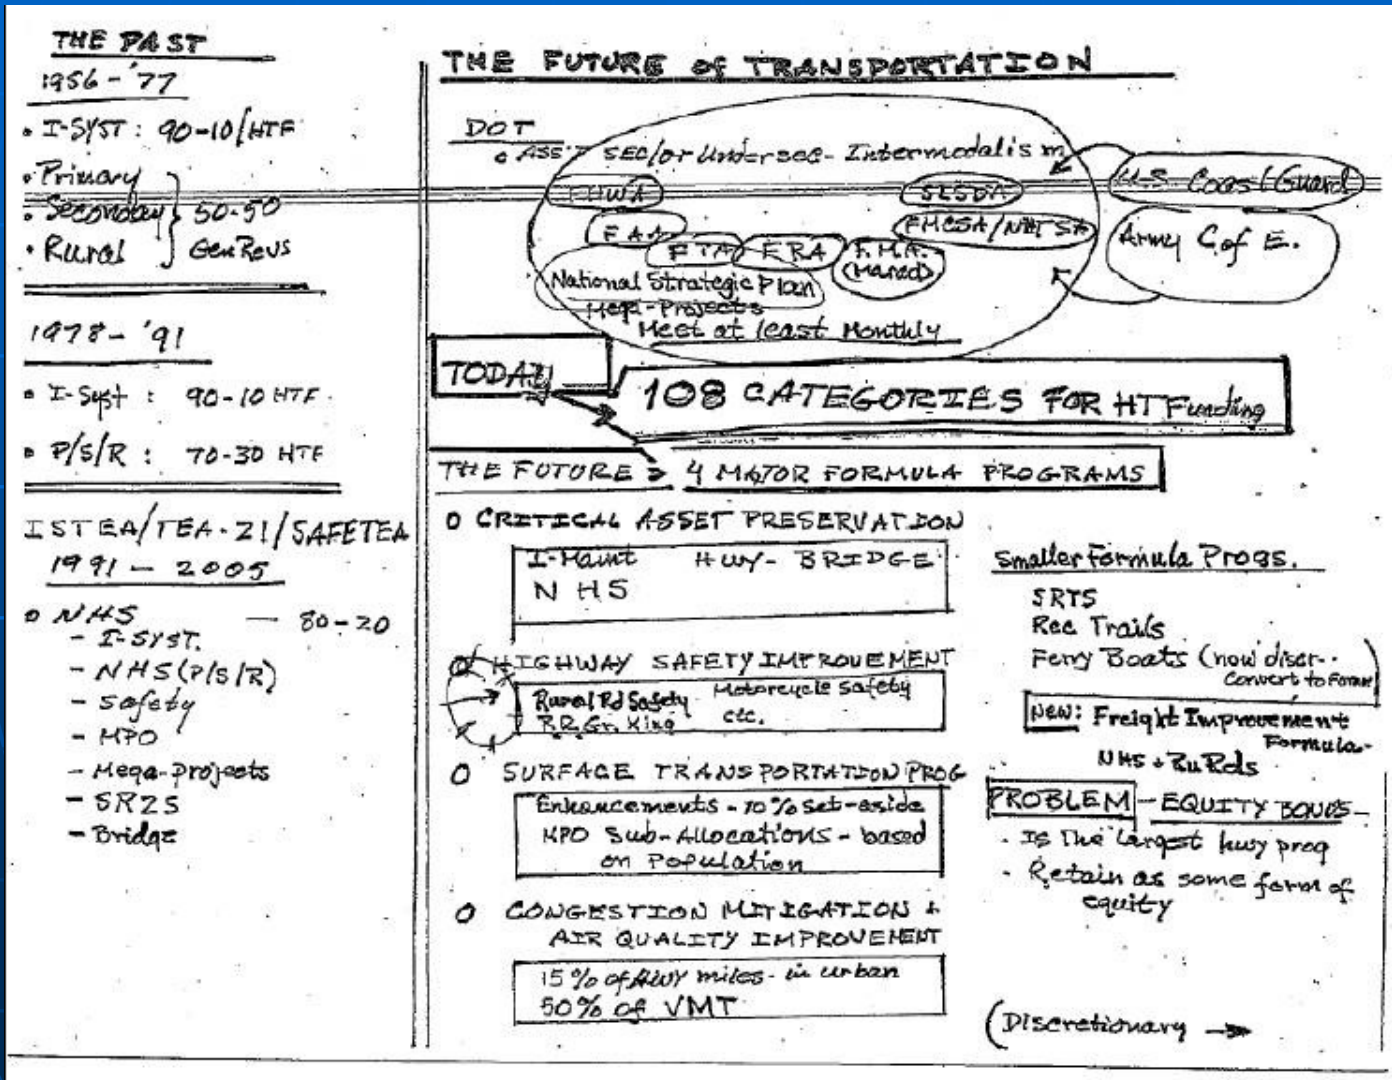 THE PAST
1956 - '77
• I-SYST: 90-10/HTF
• Primary
• Seconday
• Rural
50-50
Gen Revs
1978 - '91
• I-Syst : 90-10 HTF.
• P/S/R : 70-30 HTF
ISTEA/TEA-21/SAFETEA
1991 - 2005
o NHS — 80-20
- I-SYST.
- NHS (P/S/R)
- Safety
- MPO
- Mega-Projects
- SR2S
- Bridge
THE FUTURE of TRANSPORTATION
DOT
o ASS'T SEC/or Undersec - Intermodalism
FHWA
SLSDA
U.S. Coast Guard
FAA
FMCSA/NHTSA
Army C of E.
FTA
FRA
F.M.A.
(Marad)
National Strategic Plan
Mega-Projects
Meet at least Monthly
TODAY
108 CATEGORIES FOR HTFunding
THE FUTURE > 4 MAJOR FORMULA PROGRAMS
o CRITICAL ASSET PRESERVATION
I-Maint HWY-BRIDGE
NHS
o HIGHWAY SAFETY IMPROVEMENT
Rural Rd Safety Motorcycle Safety
R.R. Gr. Xing etc.
o SURFACE TRANSPORTATION PROG
Enhancements - 10% set-aside
MPO Sub-Allocations - based
on Population
o CONGESTION MITIGATION +
AIR QUALITY IMPROVEMENT
15% of HWY miles - in urban
50% of VMT
Smaller Formula Progs.
SRTS
Rec Trails
Ferry Boats (now discr..
Convert to Form
New: Freight Improvement
Formula-
NHS + RuRds
PROBLEM - EQUITY BONUS -
• Is the largest hwy prog
• Retain as some form of
equity
(Discretionary →